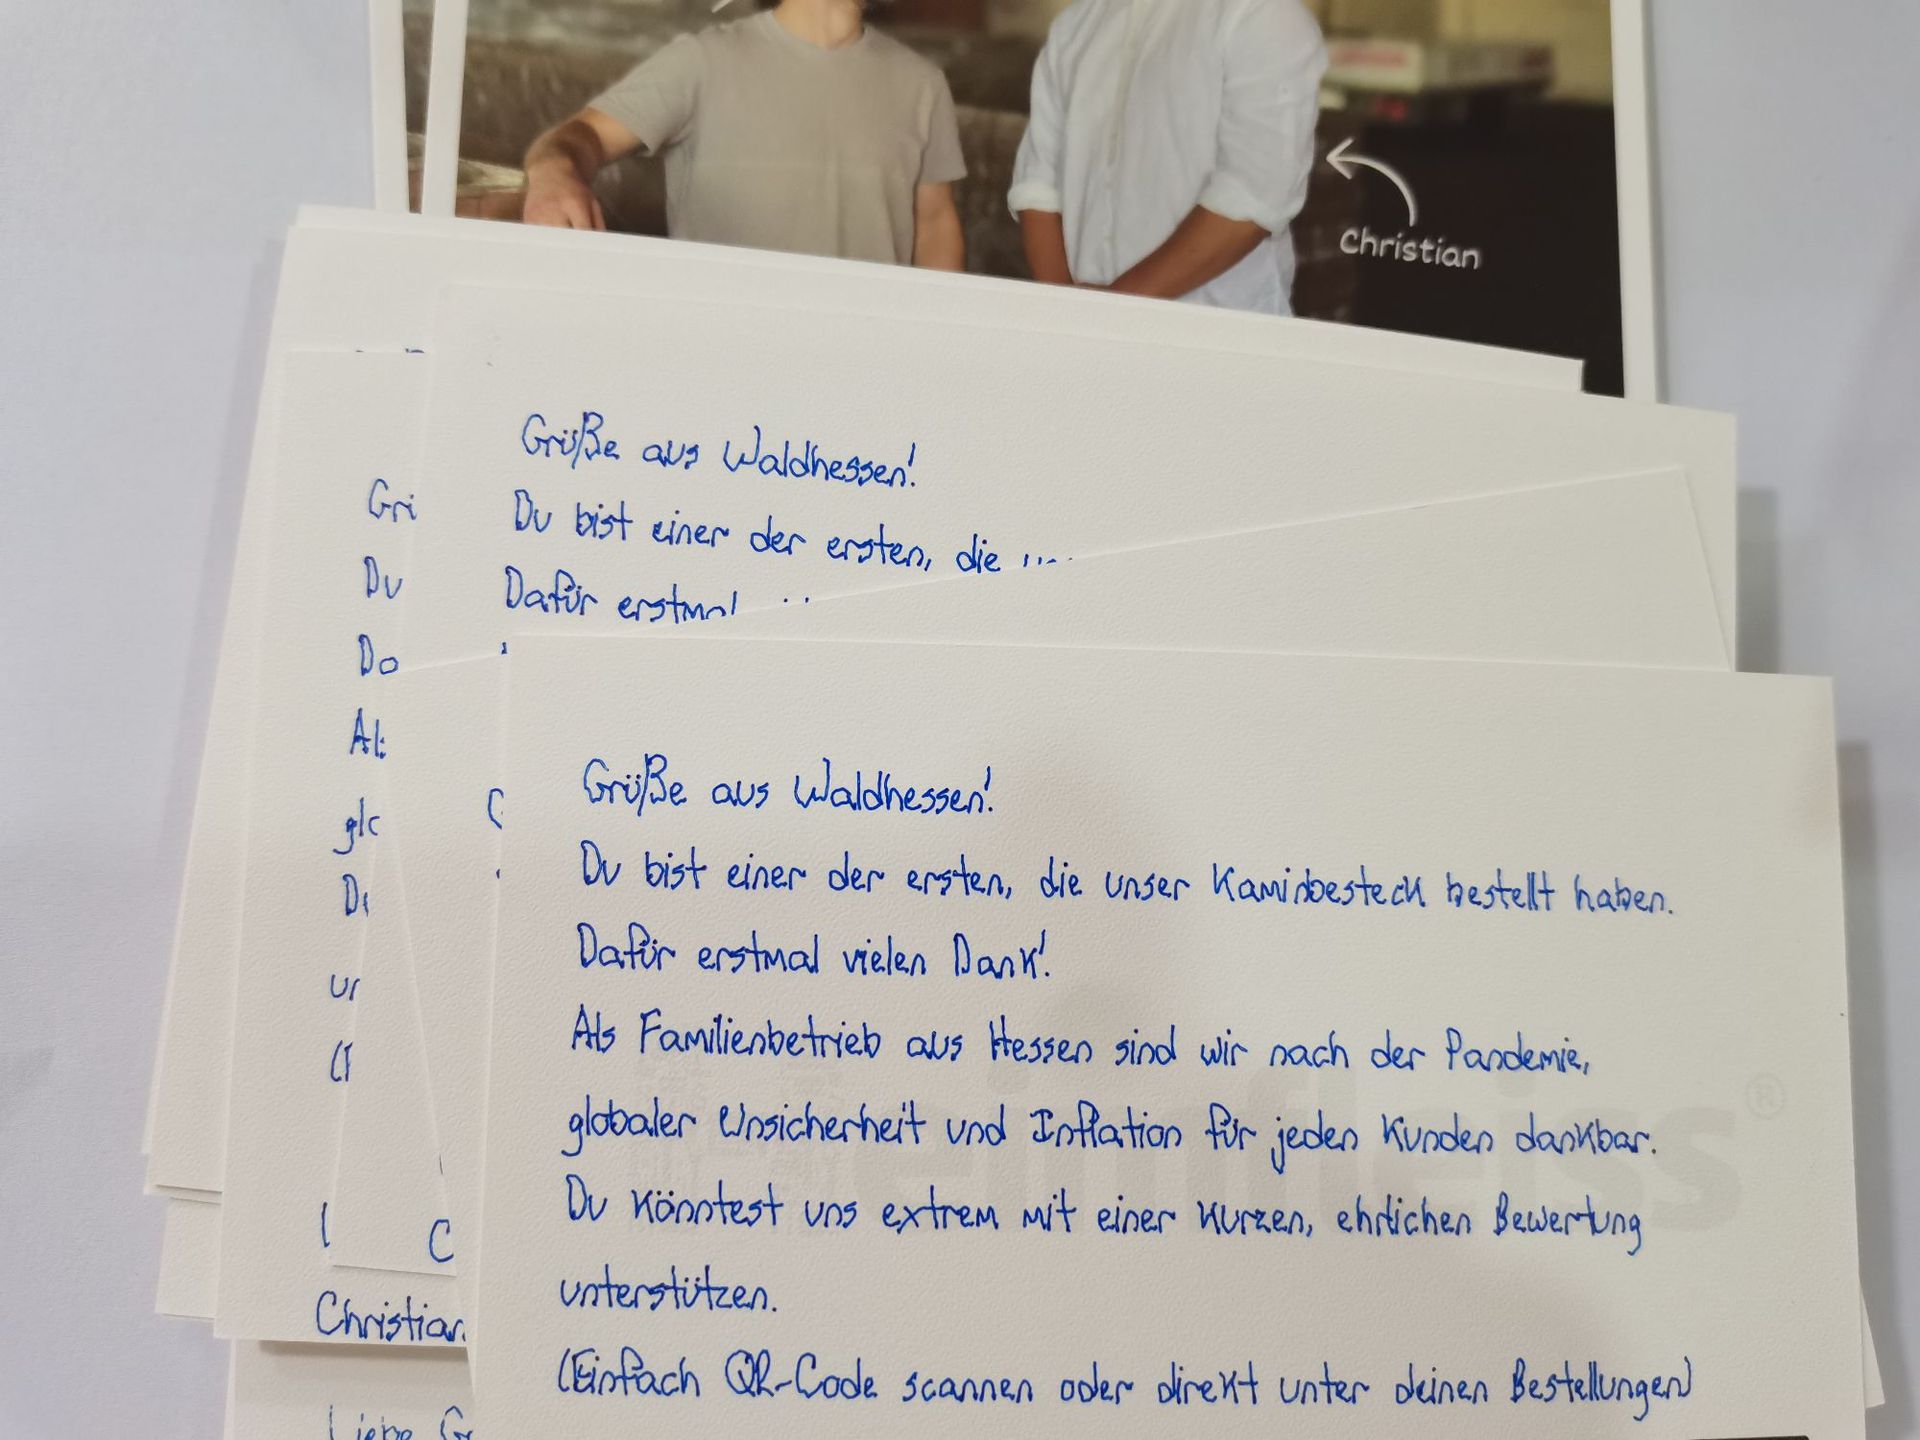 Christian
Grüße aus Waldhessen!
Du bist einer der ersten, die
Dafür erstmal
Du
Grüße aus Waldhessen!
Du bist einer der ersten, die unser Kaminbesteck bestellt haben.
Dafür erstmal vielen Dank!
Als Familienbetrieb aus Hessen sind wir nach der Pandemie,
globaler Unsicherheit und Inflation für jeden Kunden dankbar.
Du könntest uns extrem mit einer kurzen, ehrlichen Bewertung
unterstützen.
(Einfach QR-Code scannen oder direkt unter deinen Bestellungen)
Christian
Liebe